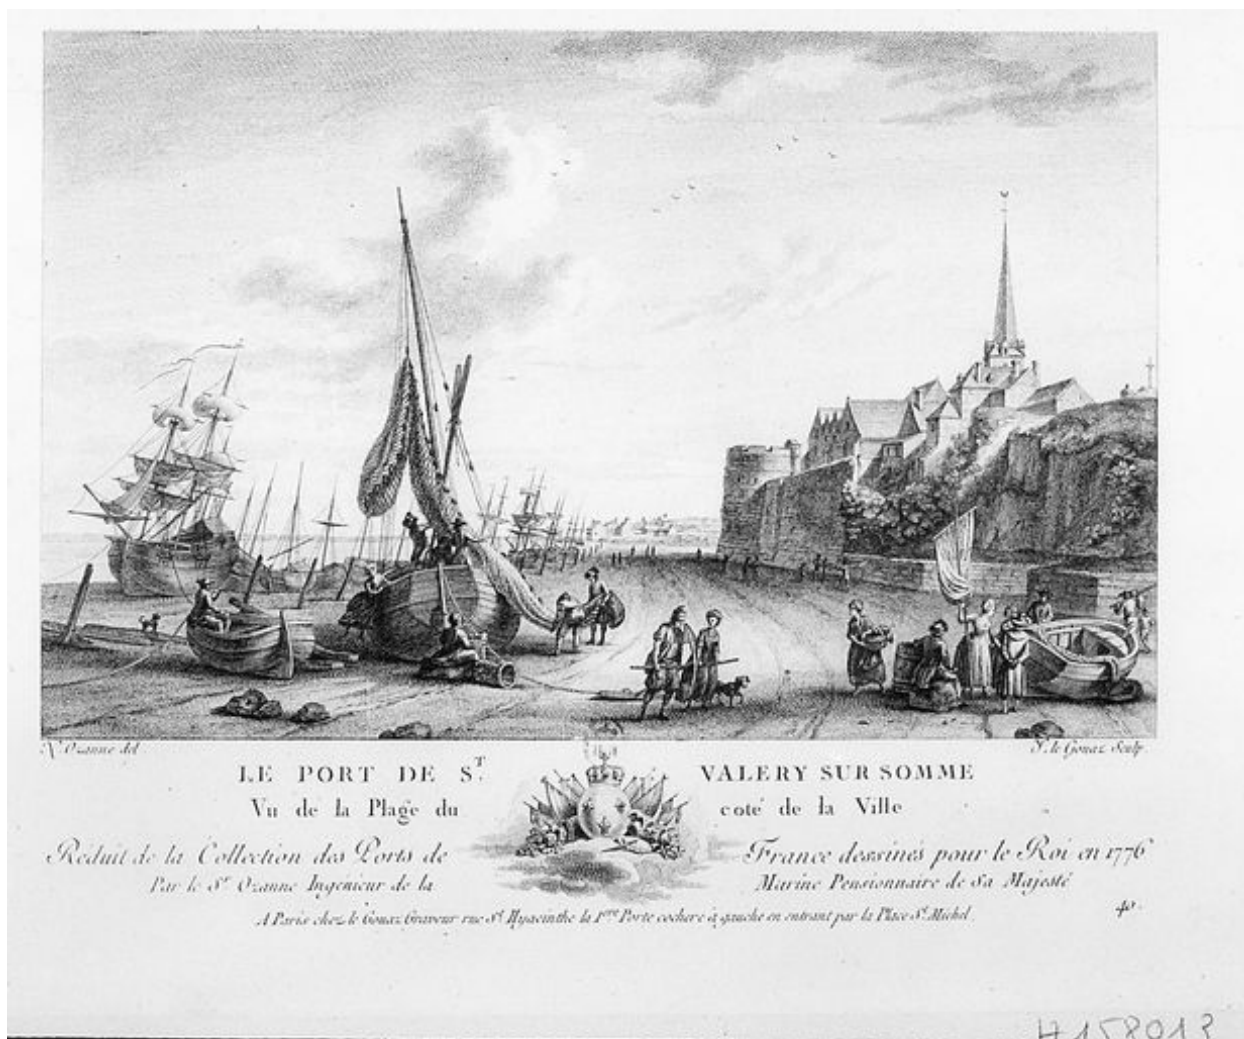 N. Ozanne del. Y. le Gouaz Sculp.
LE PORT DE S.T VALERY SUR SOMME
Vu de la Plage du coté de la Ville
Réduit de la Collection des Ports de France dessinés pour le Roi en 1776
Par le Sr Ozanne Ingénieur de la Marine Pensionnaire de Sa Majesté
A Paris chez le Gouaz Graveur rue St Hyacinthe la 1ere Porte cochere à gauche en entrant par la Place St Michel.
40.
H158013